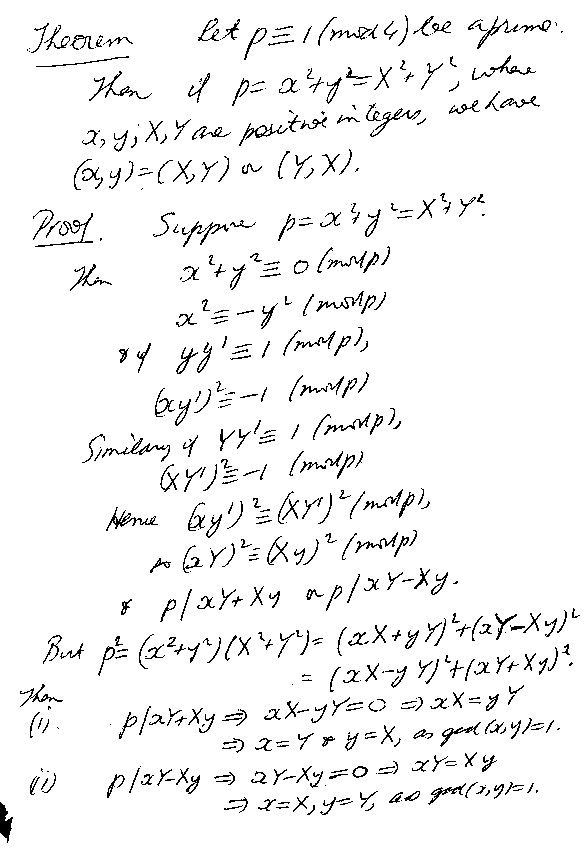 Theorem Let p≡1(mod 4) be a prime.
Then if p = x²+y² = X²+Y², where
x, y, X, Y are positive integers, we have
(x,y)=(X,Y) or (Y,X).
Proof. Suppose p=x²+y²=X²+Y².
Then x²+y²≡0 (mod p)
x²≡-y² (mod p)
& if yy'≡1 (mod p),
(xy')²≡-1 (mod p)
Similarly if YY'≡1 (mod p),
(XY')²≡-1 (mod p)
Hence (xy')²≡(XY')² (mod p),
so (xY)²≡(Xy)² (mod p)
& p|xY+Xy or p|xY-Xy.
But p²=(x²+y²)(X²+Y²)=(xX+yY)²+(xY-Xy)²
=(xX-yY)²+(xY+Xy)².
Then
(i). p|xY+Xy ⇒ xX-yY=0 ⇒ xX=yY
⇒ x=Y & y=X, as gcd(x,y)=1.
(ii) p|xY-Xy ⇒ xY-Xy=0 ⇒ xY=Xy
⇒ x=X, y=Y, as gcd(x,y)=1.